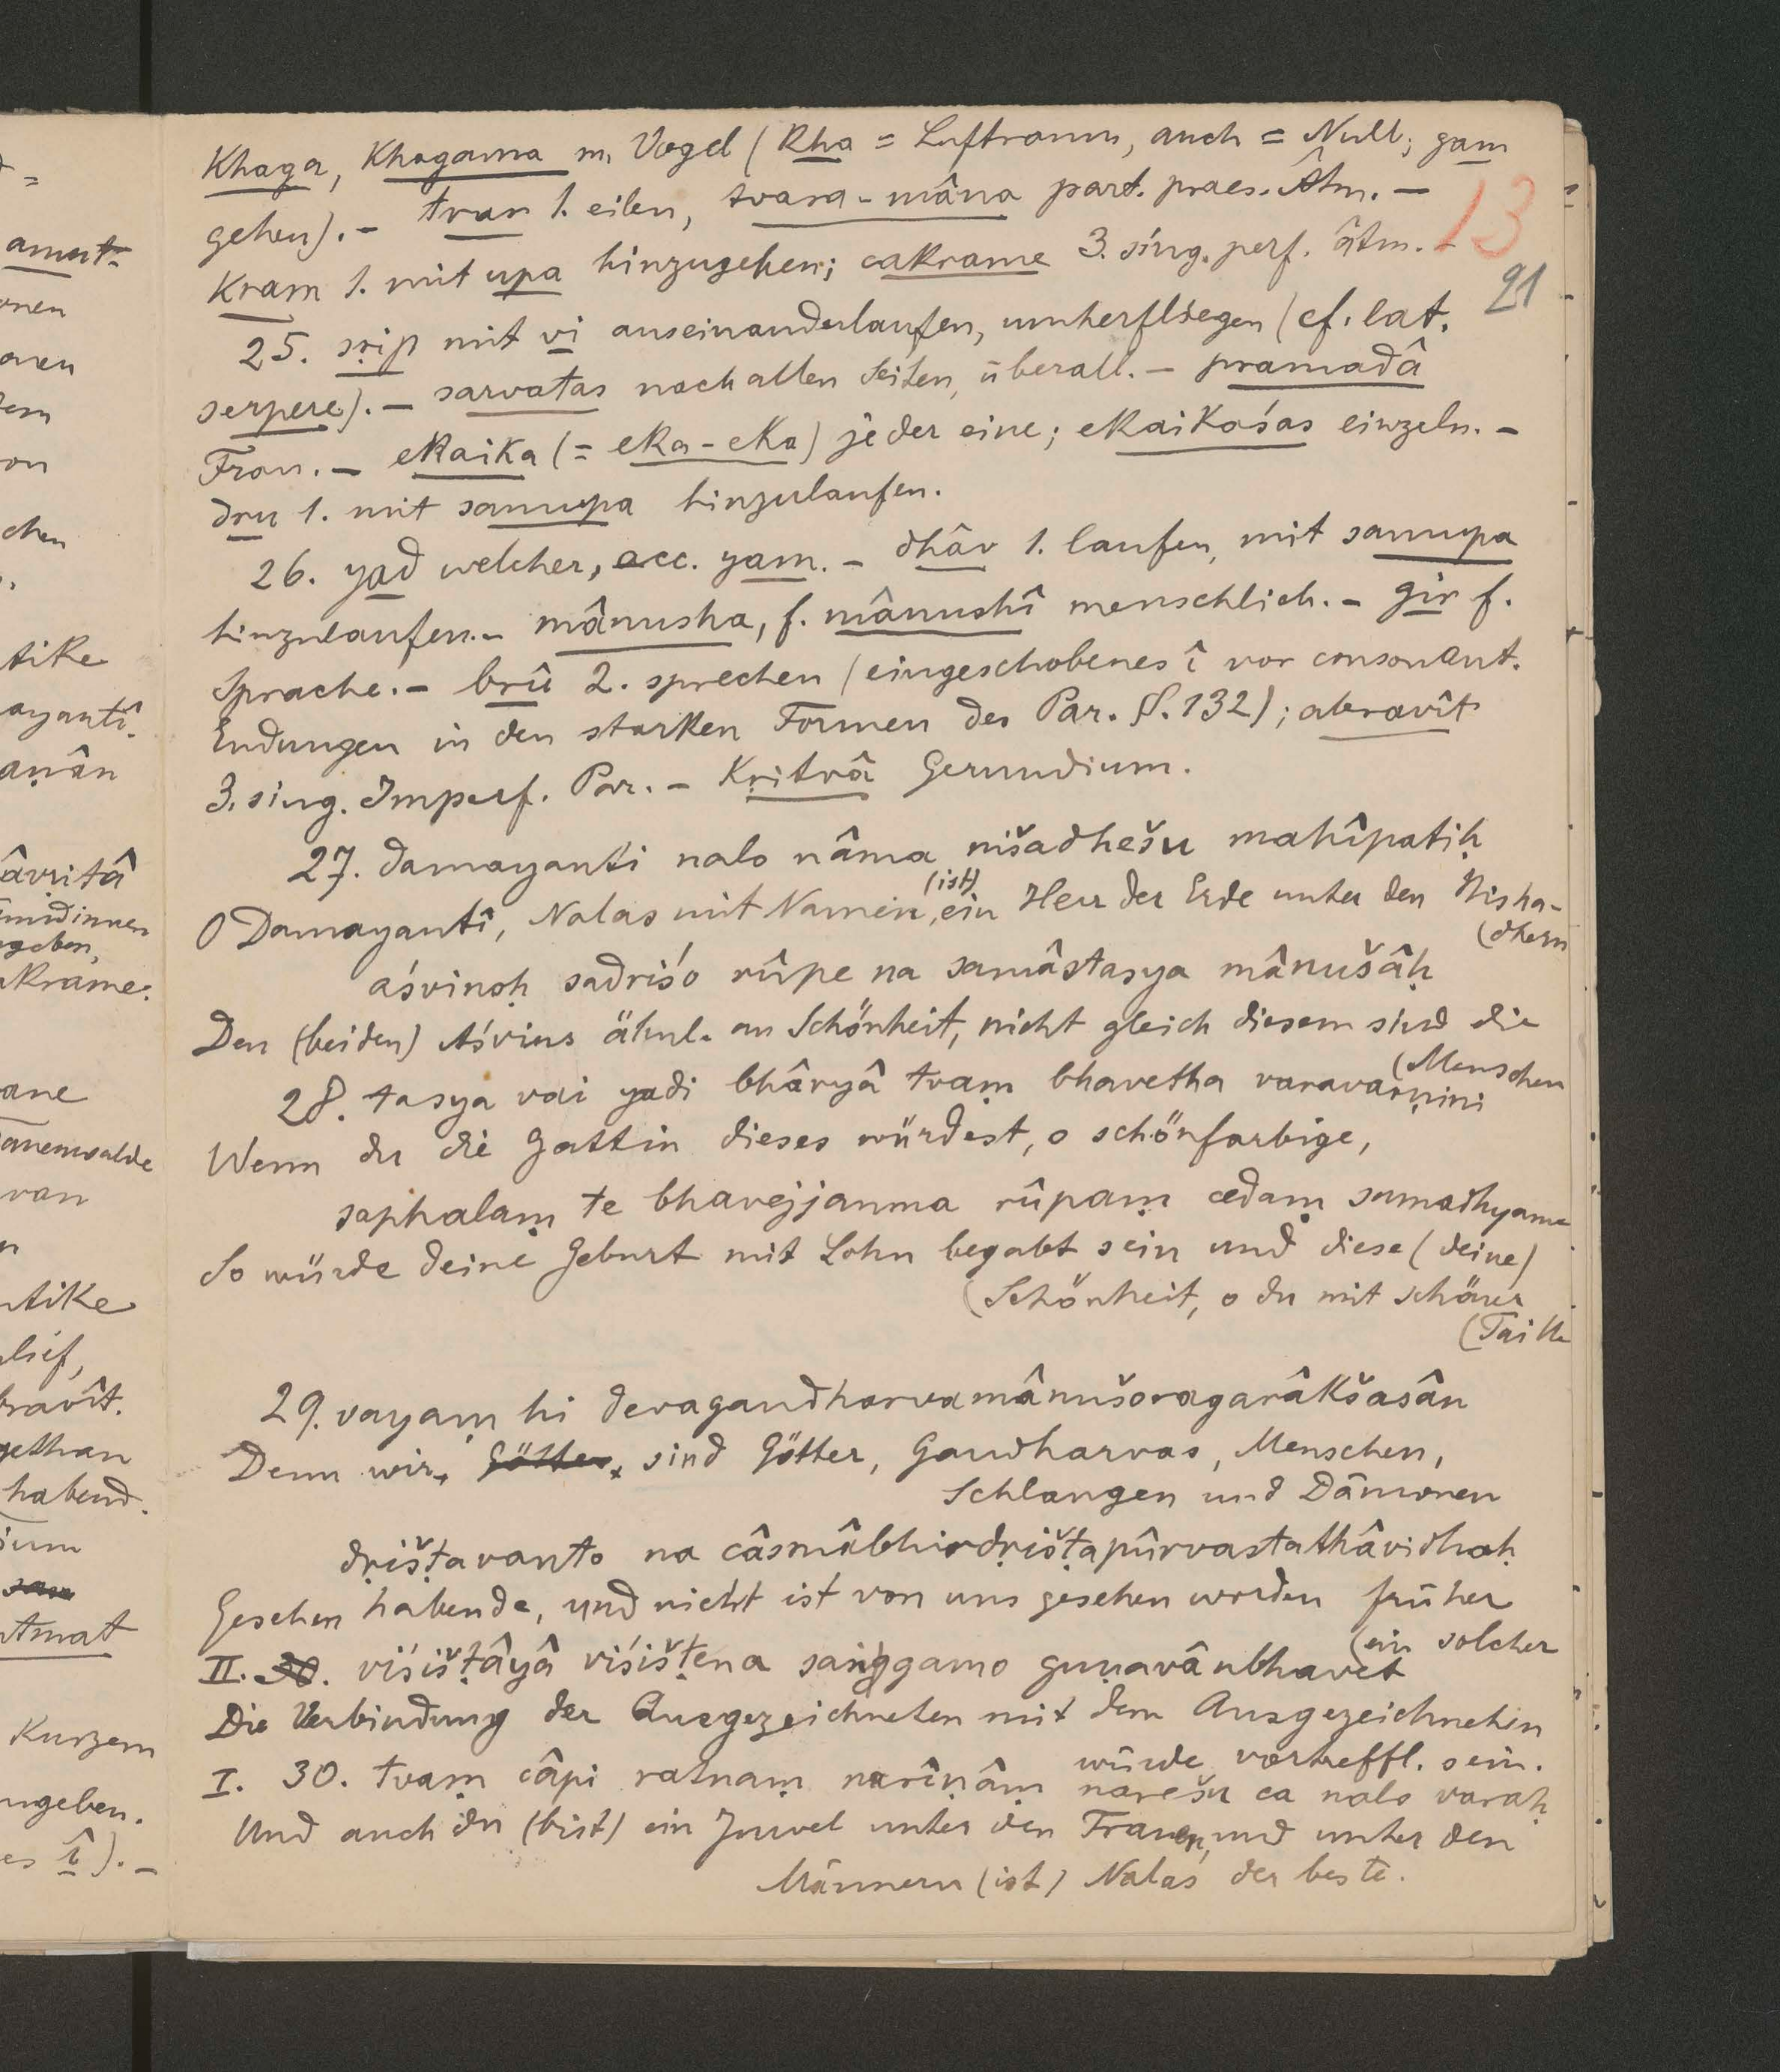 Khaga, Khagama m. Vogel (kha = Luftraum, auch = Null; gam
gehen). – tvar 1. eilen, tvara-mâna part. praes. Âtm. –
13
kram 1. mit upa hinzugehen; cakrame 3. sing. perf. âtm. –
21
25. sṛip mit vi auseinanderlaufen, umherfliegen (cf. lat.
serpere). – sarvatas nach allen Seiten, überall. – pramadâ
Frau. – ekaika (= eka-eka) jeder eine; ekaikaśas einzeln. –
dru 1. mit samupa hinzulaufen.
26. yad welcher, acc. yam. – dhâv 1. laufen, mit samupa
hinzulaufen. – mânusha, f. mânushî menschlich. – gir f.
Sprache. – brû 2. sprechen (eingeschobenes î vor consonant.
Endungen in den starken Formen des Par. §. 132); abravît
3. sing. Imperf. Par. – kṛitvâ Gerundium.
27. damayanti nalo nâma nišadhešu mahîpatiḥ
O Damayantî, Nalas mit Namen, (ist) ein Herr der Erde unter den Nisha-
(dhern
aśvinoḥ sadriśo rûpe na samâstasya mânušâḥ
Den (beiden) Aśvins ähnl. an Schönheit, nicht gleich diesem sind die
(Menschen
28. tasya vai yadi bhâryâ tvaṃ bhavetha varavarṇini
Wenn du die Gattin dieses würdest, o schönfarbige,
saphalaṃ te bhavejjanma rûpaṃ cedaṃ sumadhyame
So würde deine Geburt mit Lohn begabt sein und diese (deine)
(Schönheit, o du mit schöner
(Taille
29. vayaṃ hi devagandharvamânušoragarâkšasân
Denn wir, Götter, sind Götter, Gandharvas, Menschen,
Schlangen und Dämonen
dṛišṭavanto na câsmâbhirdṛišṭapûrvastathâvidhaḥ
Gesehen habende, und nicht ist von uns gesehen worden früher
(ein solcher
II. 30. viśišṭâyâ viśišṭena saṅggamo guṇavânbhavet
Die Verbindung der Ausgezeichneten mit dem Ausgezeichneten
würde vortreffl. sein.
I. 30. tvaṃ câpi ratnaṃ narîṇâṃ narešu ca nalo varaḥ
Und auch du (bist) ein Juwel unter den Frauen, und unter den
Männern (ist) Nalas der beste.